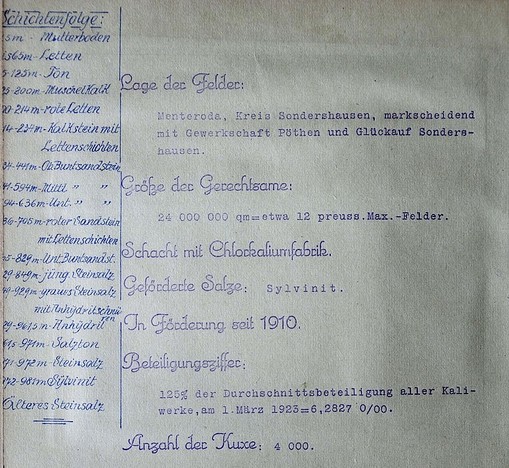 Schichtenfolge:
5m - Mutterboden
565m-Letten
5-125m- Ton
25-200m-Muschelkalk
00-214m-rote Letten
14-234m-Kalkstein mit
Lettenschichten
34-441m-Ob.Buntsandstein
41-594m-Mittl " "
94-636m-Unt. " "
36-705m-roter Sandstein
mit Lettenschichten
05-829m-Unt.Buntsandst.
29-849m-jüng. Steinsalz
49-929m-graues Steinsalz
mit Anhydritschnü
ren
29-961,5m-Anhydrit
61,5-971m-Salzton
71-972m-Steinsalz
972-981m Sylvinit
Älteres Steinsalz
Lage der Felder:
Menteroda, Kreis Sondershausen, markscheidend
mit Gewerkschaft Pöthen und Glückauf Sonders-
hausen.
Größe der Gerechtsame:
24 000 000 qm=etwa 12 preuss.Max.-Felder.
Schacht mit Chlorkaliumfabrik.
Geförderte Salze: Sylvinit.
In Förderung seit 1910.
Beteiligungsziffer:
125% der Durchschnittsbeteiligung aller Kali-
werke,am 1.März 1923=6,2827 0/00.
Anzahl der Kuxe: 4 000.